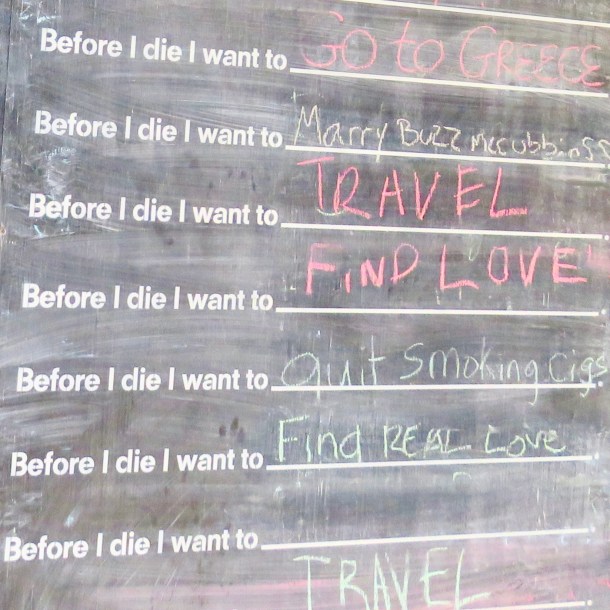 Before I die I want to Go to GREECE
Before I die I want to Marry Buzz Mccubbinss
Before I die I want to TRAVEL
Before I die I want to FiND LOVE
Before I die I want to quit smoking cigs
Before I die I want to Find REAL Love
Before I die I want to
TRAVEL